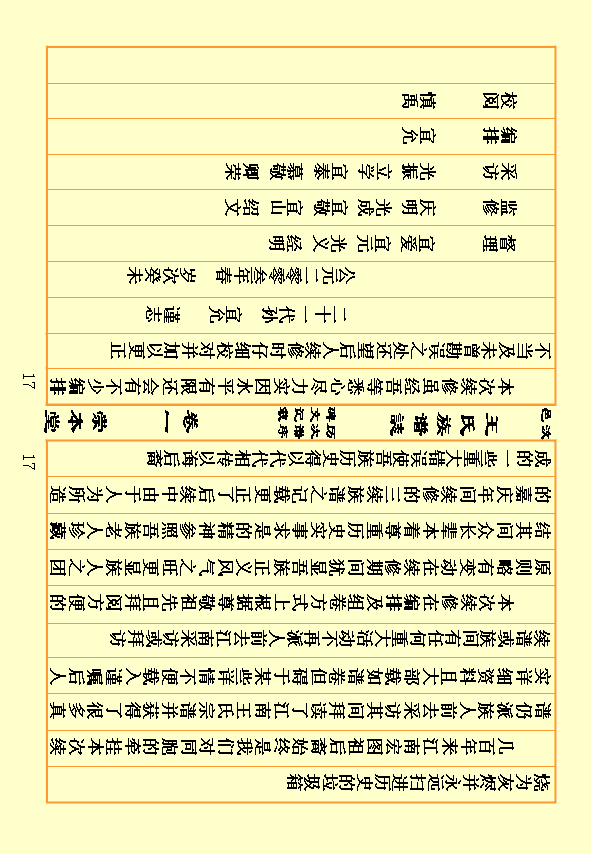 烧为灰燃并永远扫进历史的垃圾箱
几百年来江南宏图后裔始终是我们对同胞的牵挂本次续
谱仍派族人前去采访其间拜读了江南王氏宗谱并获得了很多真
实详细资料且大部载如谱卷但碍于某些详情不便载入谨嘱后人
续谱或族间有任何重大活动不再派人前去江南采访或拜访
本次续修在编排及卷组方式上根据尊敬祖先且拜阅方便的
原则略有变动在续修期间犹显吾族正义风气之旺更显族人之团
结其间众长辈本着尊重历史实事求是的精神参照吾族老人珍藏
的嘉庆年间续修的三续族谱之记载更正了续后中由于人为所造
成的一些重大错误使吾族历史得以代代相传以诲后裔
17
汶邑 王氏族譜誌 历次谱序 碑文记载 卷一 崇本堂
17
本次续修虽经吾等悉心尽力实因水平有限还会有不少编排
不当及未曾勘误之处还望后人续修时仔细校对并加以更正
二十一代孙 宜允 谨志
公元二零零叁年春 岁次癸未
督理 宜爱 宜元 光义 经明
监修 庆明 光成 宜敬 宜山 绍文
采访 光振 立学 宜泰 慕敬 卿荣
编排 宜允
校阅 慎禹